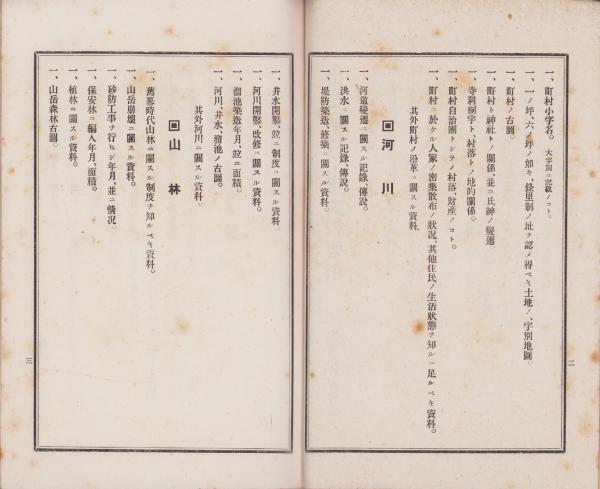 一、町村小字名。大字別ニ記載ノコト。
一、一ノ坪、六ノ坪ノ如キ、條里制ノ址ヲ認メ得ベキ土地ノ、字別地圖。
一、町村ノ古圖。
一、町村ト神社トノ關係、並ニ氏神ノ變遷。
一、寺刹祠宇ト、村落トノ地的關係。
一、町村自治團トシテノ村落、財産ノコト。
一、町村ニ於ケル人家ノ密集散布ノ狀況、其他住民ノ生活狀態ヲ知ルニ足ルベキ資料。
其外町村ノ沿革ニ關スル資料。
河川
一、河道變遷ニ關スル記錄、傳說。
一、洪水ニ關スル記錄、傳說。
一、堤防築造、修築ニ關スル資料。
二
一、井水開鑿、竝ニ制度ニ關スル資料。
一、河川開鑿、改修ニ關スル資料。
一、溜池築造年月、竝ニ面積。
一、河川、井水、溜池ノ古圖。
其外河川ニ關スル資料。
山林
一、舊幕時代山林ニ關スル制度ヲ知ルベキ資料。
一、山岳崩壞ニ關スル資料。
一、砂防工事ヲ行ヒシ年月、並ニ情況。
一、保安林ニ編入年月、面積。
一、植林ニ關スル資料。
一、山岳森林古圖。
三